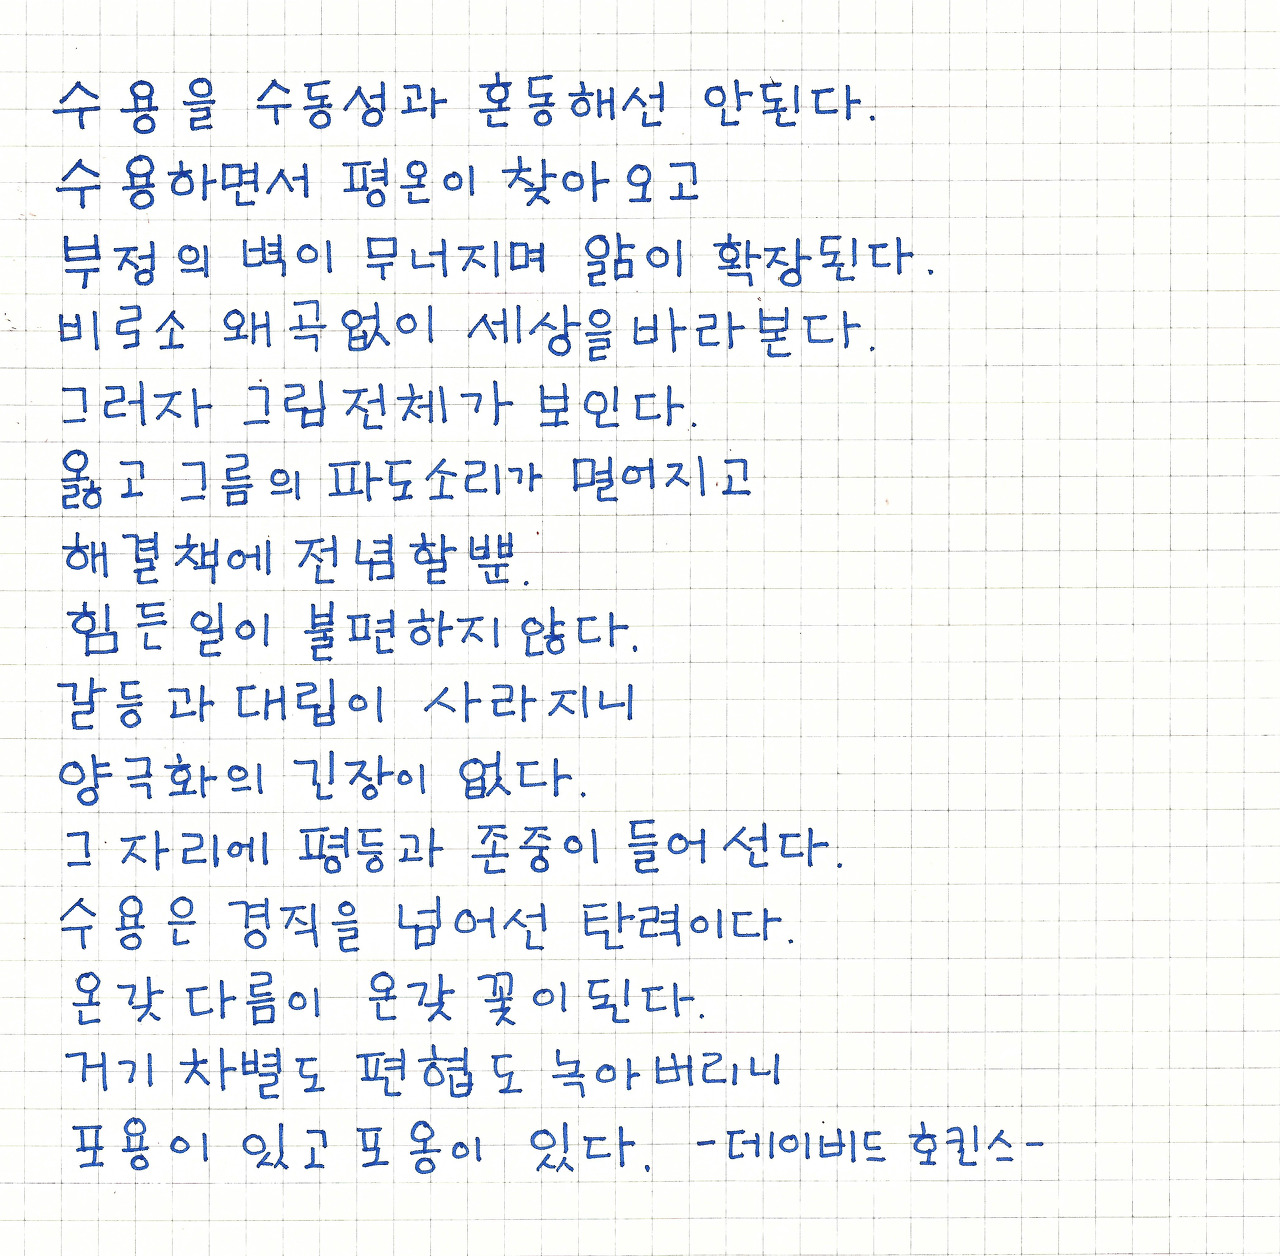 수용을 수동성과 혼동해선 안된다.
수용하면서 평온이 찾아오고
부정의 벽이 무너지며 앎이 확장된다.
비로소 왜곡없이 세상을 바라본다.
그러자 그림 전체가 보인다.
옳고 그름의 파도소리가 멀어지고
해결책에 전념할 뿐.
힘든 일이 불편하지 않다.
갈등과 대립이 사라지니
양극화의 긴장이 없다.
그 자리에 평등과 존중이 들어선다.
수용은 경직을 넘어선 탄력이다.
온갖 다름이 온갖 꽃이 된다.
거기 차별도 편협도 녹아버리니
포용이 있고 포옹이 있다. -데이비드 호킨스-